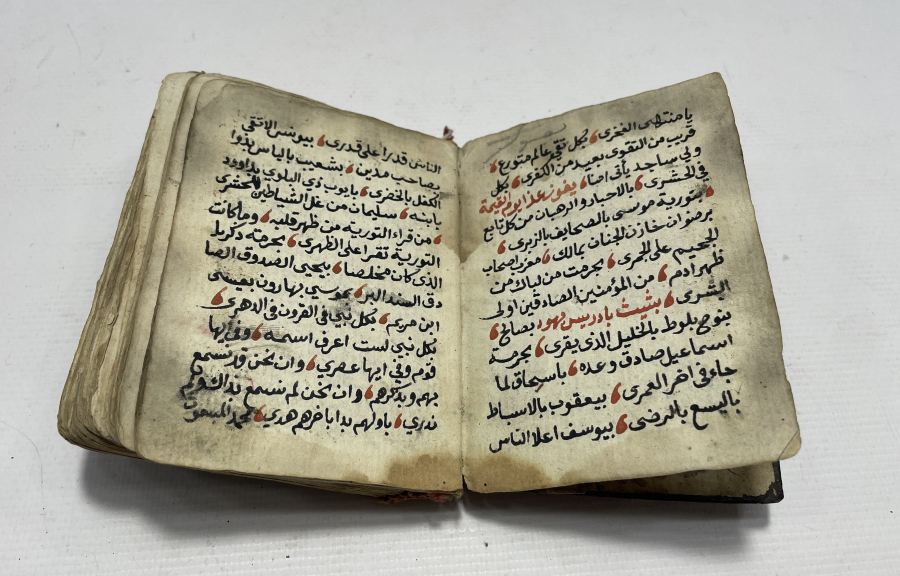 يا منتهى الفخرى بكل تقي عالم متورع
قريب من التقوى بعيد من الكفرى بكل
ولي ساجد يأتى اضا يفوز غدا يوم القيمة
في الحشرى بالاحبار والرهبان من كل تابع
بتورية موسى بالصحايف بالزبرى
برضوان خازن الجنان بمالك معزب اصحاب
الجحيم على الجمرى بحرمت من لباك من
ظهر ادم من المؤمنين الصادقين اولى
البشرى بشيث بادريس بهود بصالح
بنوح بلوط بالخليل الذى يقرى بحرمة
اسماعيل صادق وعده باسحاق لما
جاء في اخر العمرى بيعقوب بالاسباط
باليسع بالرضى بيوسف اعلا الناس
الناس قدرا على قدرى بيونس الاتقى
بصاحب مدين بشعيب بالياس بذوا
الكفل بالخضرى بايوب ذي البلوى بداوود
بابنه سليمان من غل الشياطين
من قراء التورية من ظهر قلبه وما كانت
التورية تقرا على الظهرى بحرمة ذكريا
الذى كان مخلصا بيحيى الصدوق الصا
دق البر بموسي بهارون بعيسى
ابن مريم بكل نبي في القرون في الدهرى
بكل نبي لست اعرف اسمه وفي ايها
قوم وفي ايها عصرى وان نحن لم نسمع
بهم وبذكرهم وان نحن لم نسمع بذالك ولم
ندرى باولهم بدا باخرهم هدى محمد المبعوث